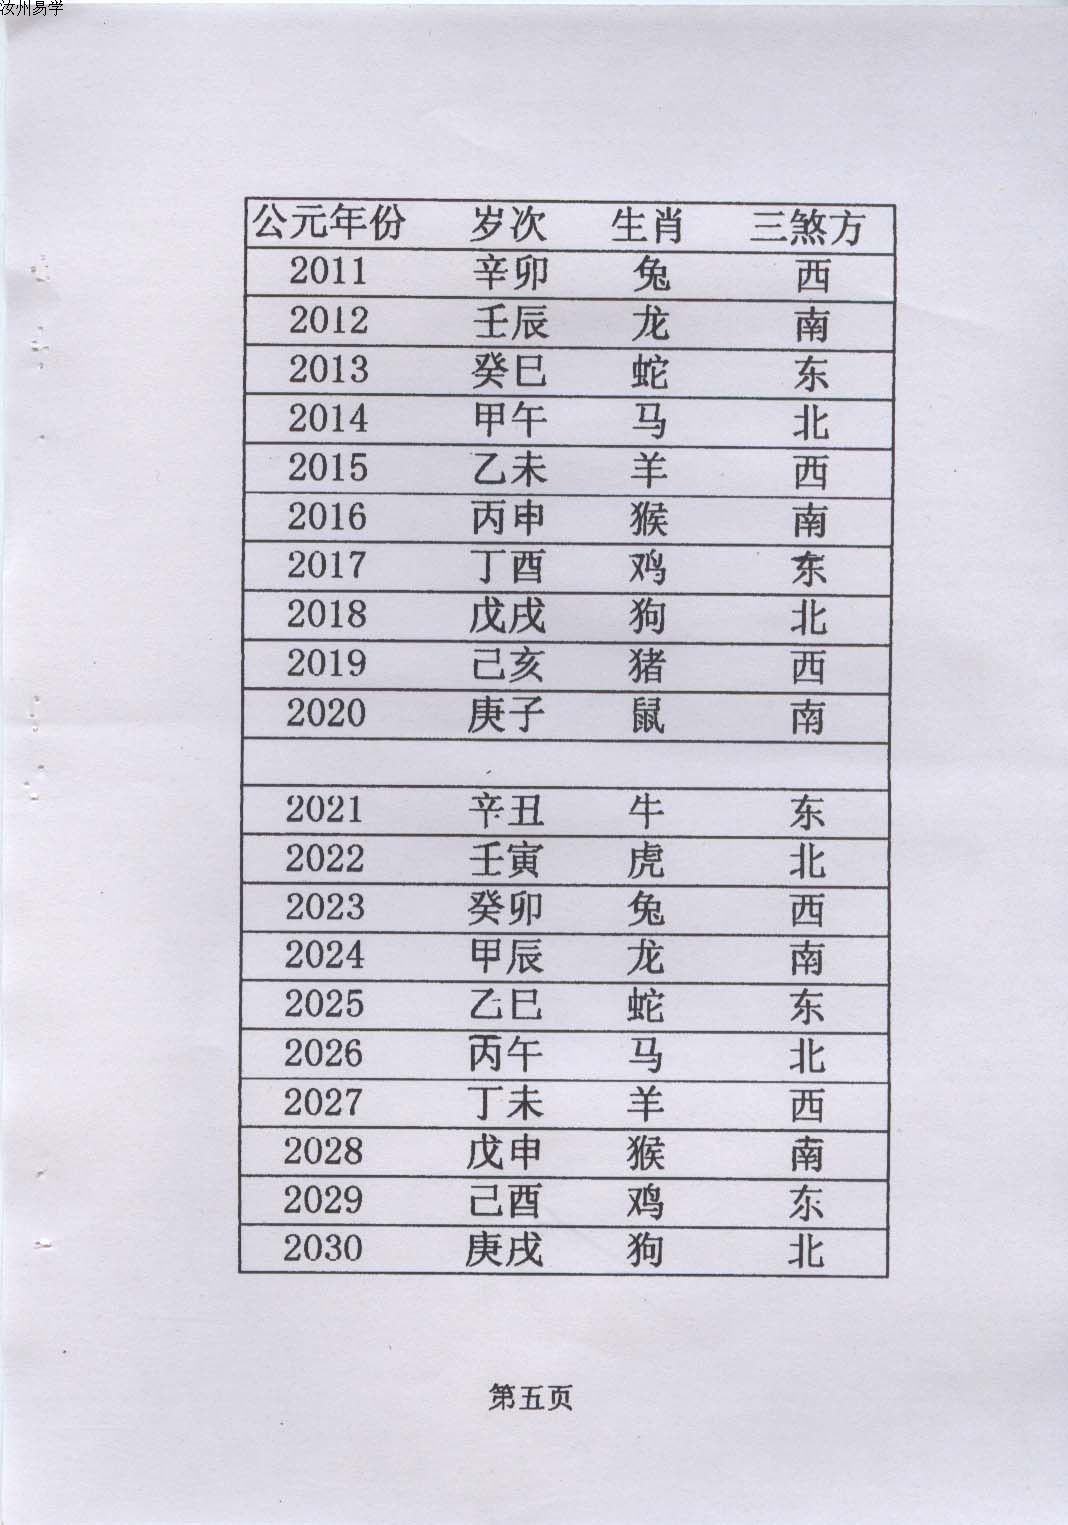 汝州易学
公元年份 岁次 生肖 三煞方
2011 辛卯 兔 西
2012 壬辰 龙 南
2013 癸巳 蛇 东
2014 甲午 马 北
2015 乙未 羊 西
2016 丙申 猴 南
2017 丁酉 鸡 东
2018 戊戌 狗 北
2019 己亥 猪 西
2020 庚子 鼠 南
2021 辛丑 牛 东
2022 壬寅 虎 北
2023 癸卯 兔 西
2024 甲辰 龙 南
2025 乙巳 蛇 东
2026 丙午 马 北
2027 丁未 羊 西
2028 戊申 猴 南
2029 己酉 鸡 东
2030 庚戌 狗 北
第五页